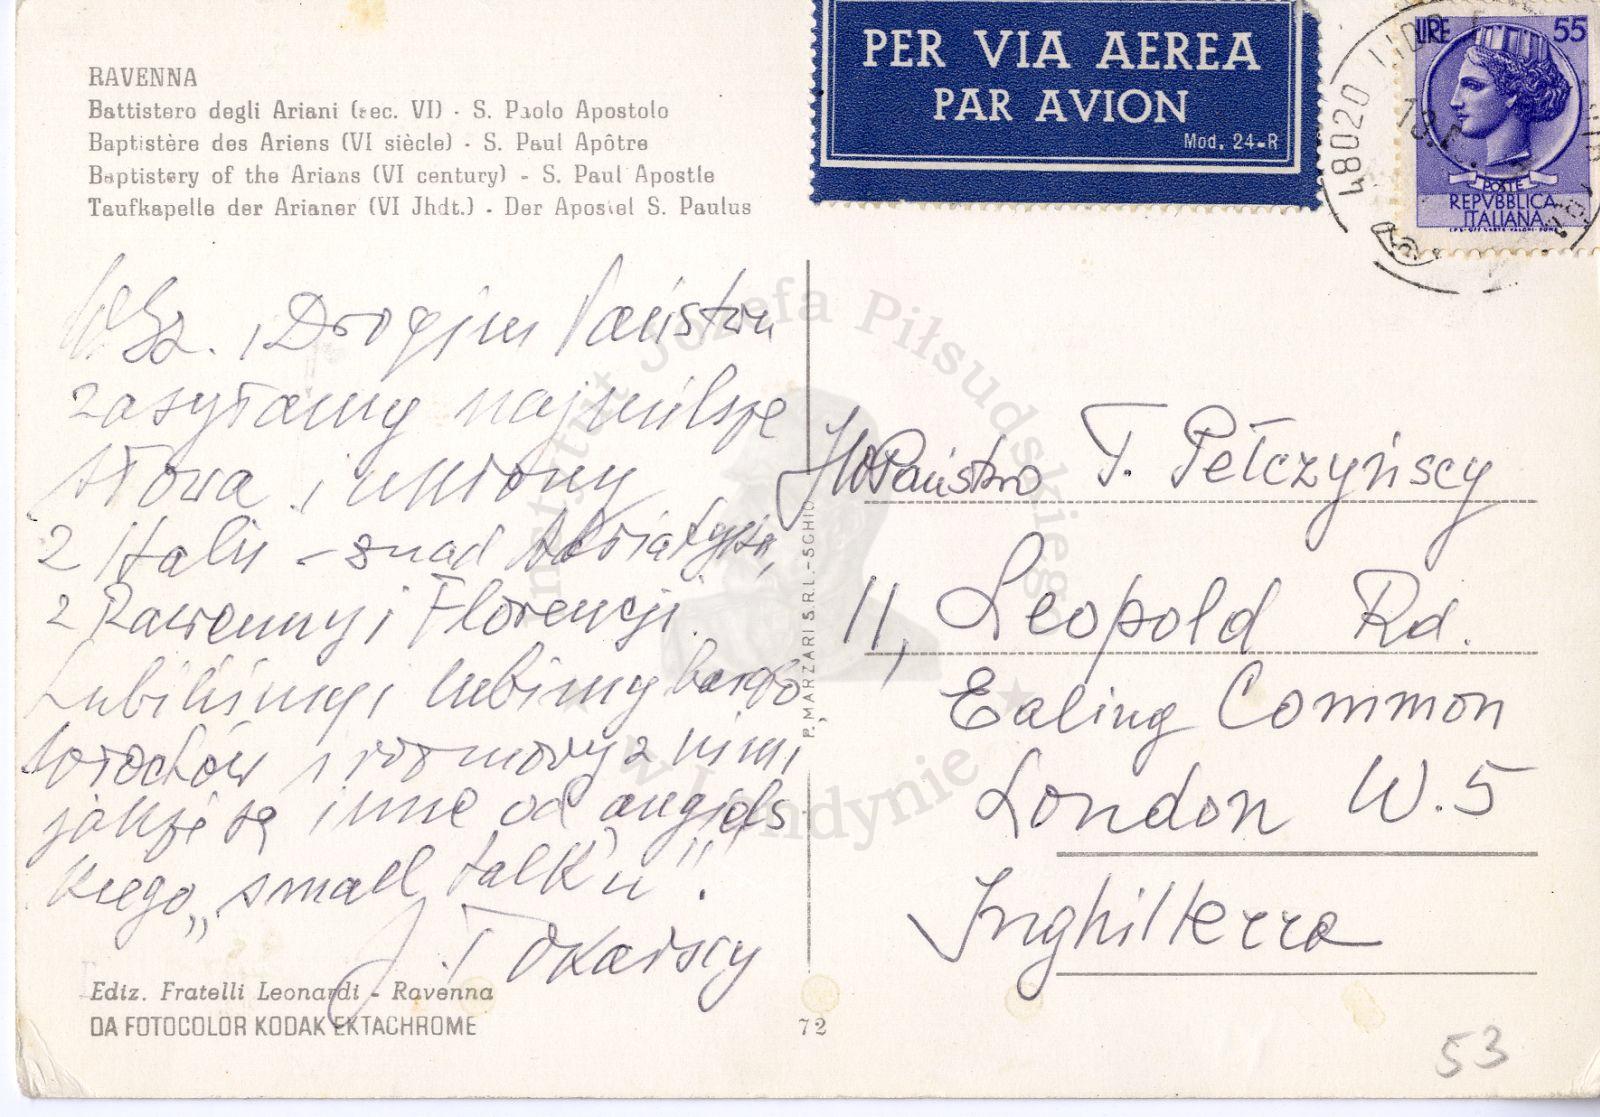 RAVENNA
Battistero degli Ariani (sec. VI) - S. Paolo Apostolo
Baptistère des Ariens (VI siècle) - S. Paul Apôtre
Baptistery of the Arians (VI century) - S. Paul Apostle
Taufkapelle der Arianer (VI Jhdt.) - Der Apostel S. Paulus
PER VIA AEREA
PAR AVION
Mod. 24-R
48020 LIDO
LIRE 55
POSTE
REPVBBLICA
ITALIANA
Drogim Państwu
zasyłamy najmilsze
słowa i ukłony
z Italii - znad Adriatyku,
z Rawenny i Florencji.
Lubiliśmy i lubimy bardzo
Włochów i rozmowy z nimi,
jakże są inne od angiels
kiego „small talk'u".
J. Tokarscy
WPaństwo T. Pełczyńscy
11, Leopold Rd.
Ealing Common
London W.5
Inghilterra
P. MARZARI S.R.L. - SCHIO
Instytut Józefa Piłsudskiego
w Londynie
Ediz. Fratelli Leonardi - Ravenna
DA FOTOCOLOR KODAK EKTACHROME
72
53